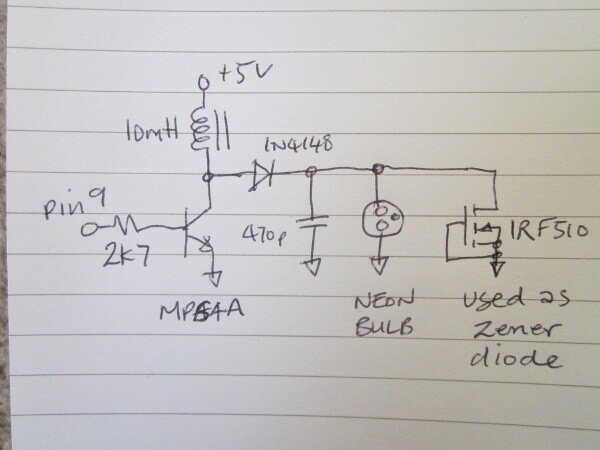 +5V
10mH
1N4148
pin 9
2K7
470p
IRF510
NEON
BULB
used as
zener
diode